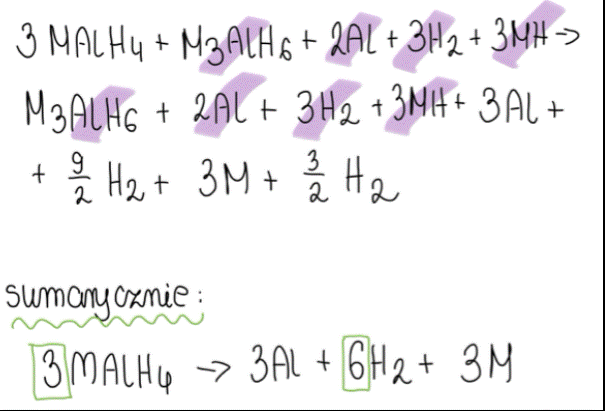 3 MAlH4 + M3AlH6 + 2Al + 3H2 + 3MH →
M3AlH6 + 2Al + 3H2 + 3MH + 3Al +
+ 9/2 H2 + 3M + 3/2 H2
sumarycznie:
3MAlH4 → 3Al + 6H2 + 3M